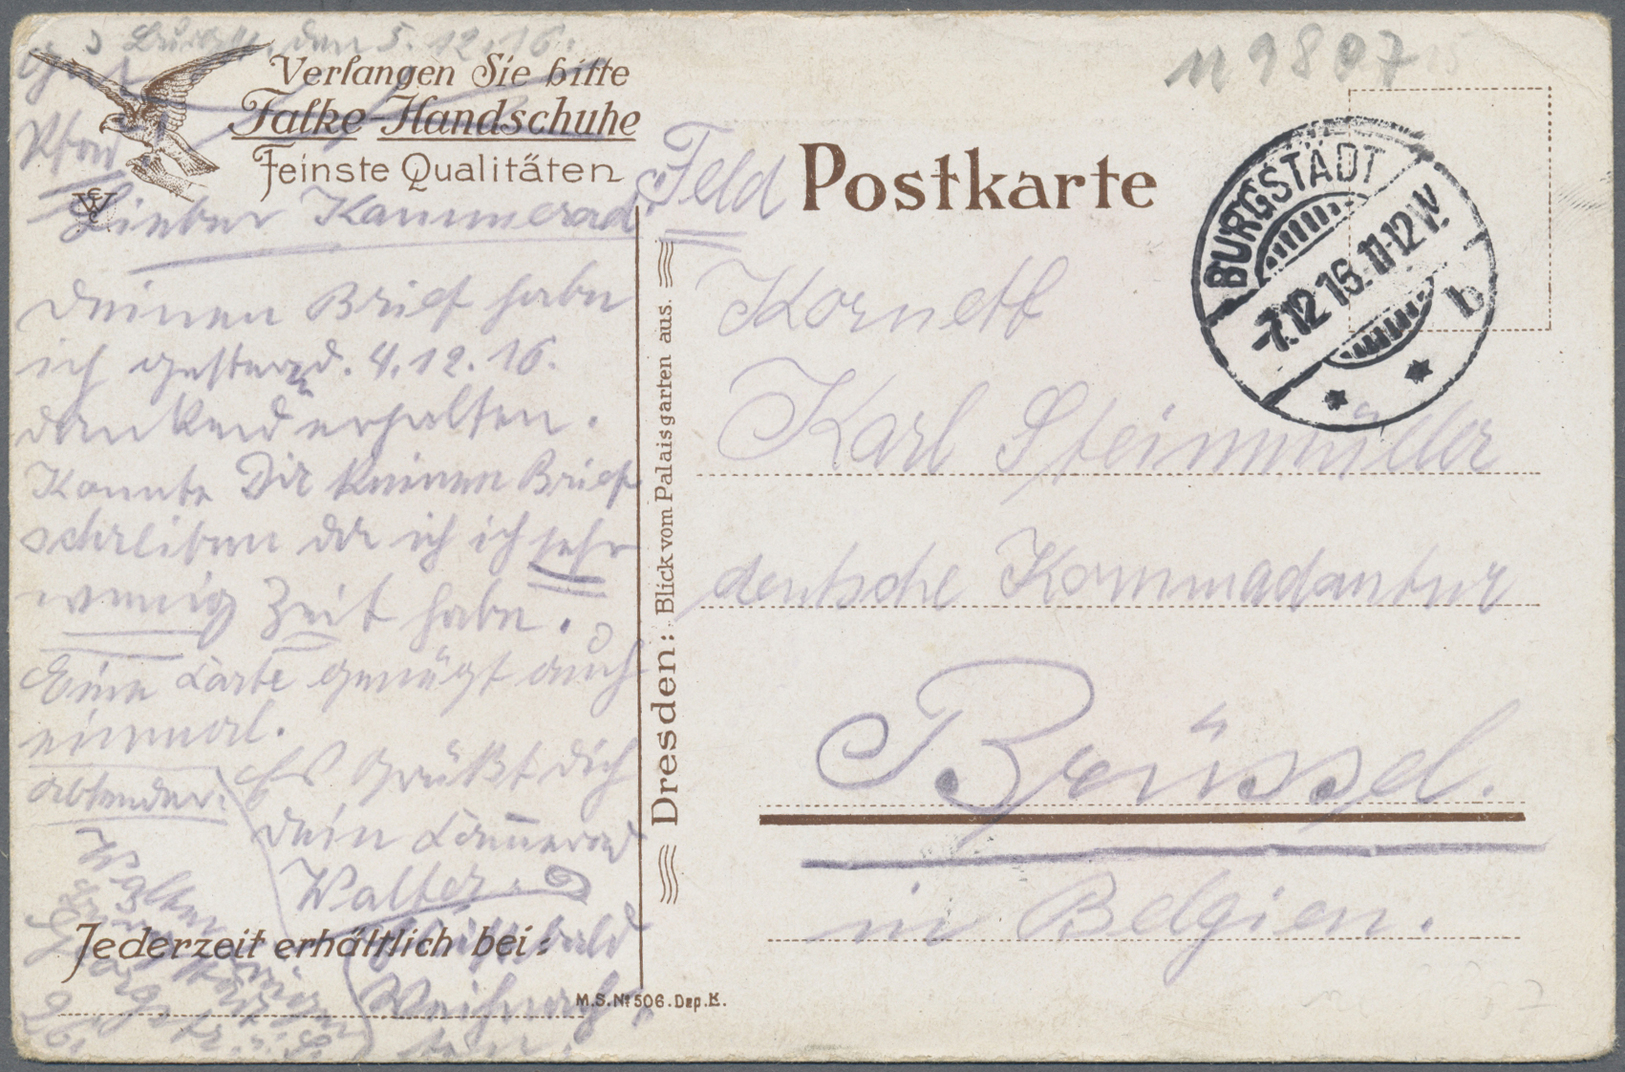 den 5. 12. 16.
Gut
Pfad
Verlangen Sie bitte
Falke-Handschuhe
Feinste Qualitäten
Lieber Kammerad!
Deinen Brief habe
ich gestern d. 4. 12. 16.
dankend erhalten.
Konnte Dir keinen Brief
schreiben da ich ich sehr
wenig Zeit habe.
Eine Karte genügt auch
einmal.
Absender:
Es grüßt dich
dein Kam̅erad
Walter.
bald
Weihnach-
ten.
Walter
26.
Jederzeit erhältlich bei:
M.S.№ 506. Dep. K.
Dresden: Blick vom Palaisgarten aus.
119807
Feld Postkarte
BURGSTÄDT
-7.12 16. 11-12 V.
b
Kornett
Karl Steinmüller
deutsche Kommadantur
Brüssel.
in Belgien.